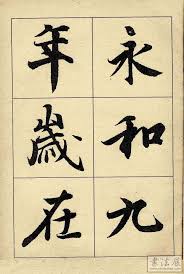 永和九
年歲在
書法展